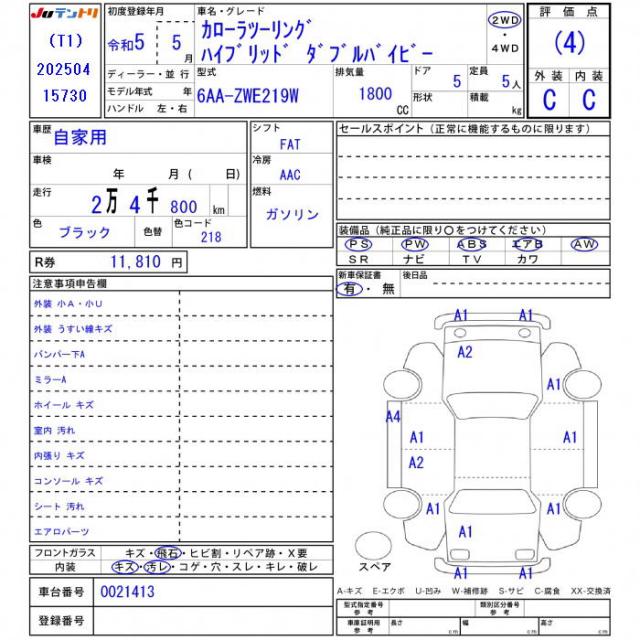 JUテントリ
(T1)
202504
15730
初度登録年月
令和5 年 5 月
車名・グレード
カローラツーリング
ハイブリッド ダブルバイビー
2WD
・
4WD
評価点
(4)
外装 内装
C C
ディーラー・並行
モデル年式 年
ハンドル 左・右
型式
6AA-ZWE219W
排気量
1800
CC
ドア 5
形状
定員 5人
積載 kg
車歴
自家用
車検
年 月 ( 日)
走行
2万 4千 800 km
色
ブラック
色替
色コード
218
シフト
FAT
冷房
AAC
燃料
ガソリン
セールスポイント (正常に機能するものに限ります)
装備品 (純正品に限り○をつけてください)
PS PW ABS エアB AW
SR ナビ TV カワ
R券 11,810 円
新車保証書
有・無
後日品
注意事項申告欄
外装 小A・小U
外装 うすい線キズ
バンパー下A
ミラーA
ホイール キズ
室内 汚れ
内張り キズ
コンソール キズ
シート 汚れ
エアロパーツ
A1 A1
A2
A1 A1
A4
A1 A1
A2
A1 A1
A1
A1 A1
スペア
フロントガラス キズ・飛石・ヒビ割・リペア跡・X要
内装 キズ・汚レ・コゲ・穴・スレ・キレ・破レ
A-キズ E-エクボ U-凹み W-補修跡 S-サビ C-腐食 XX-交換済
車台番号 0021413
登録番号
型式指定番号
参考
類別区分番号
参考
車庫証明用
参考
長さ cm
幅 cm
高さ cm